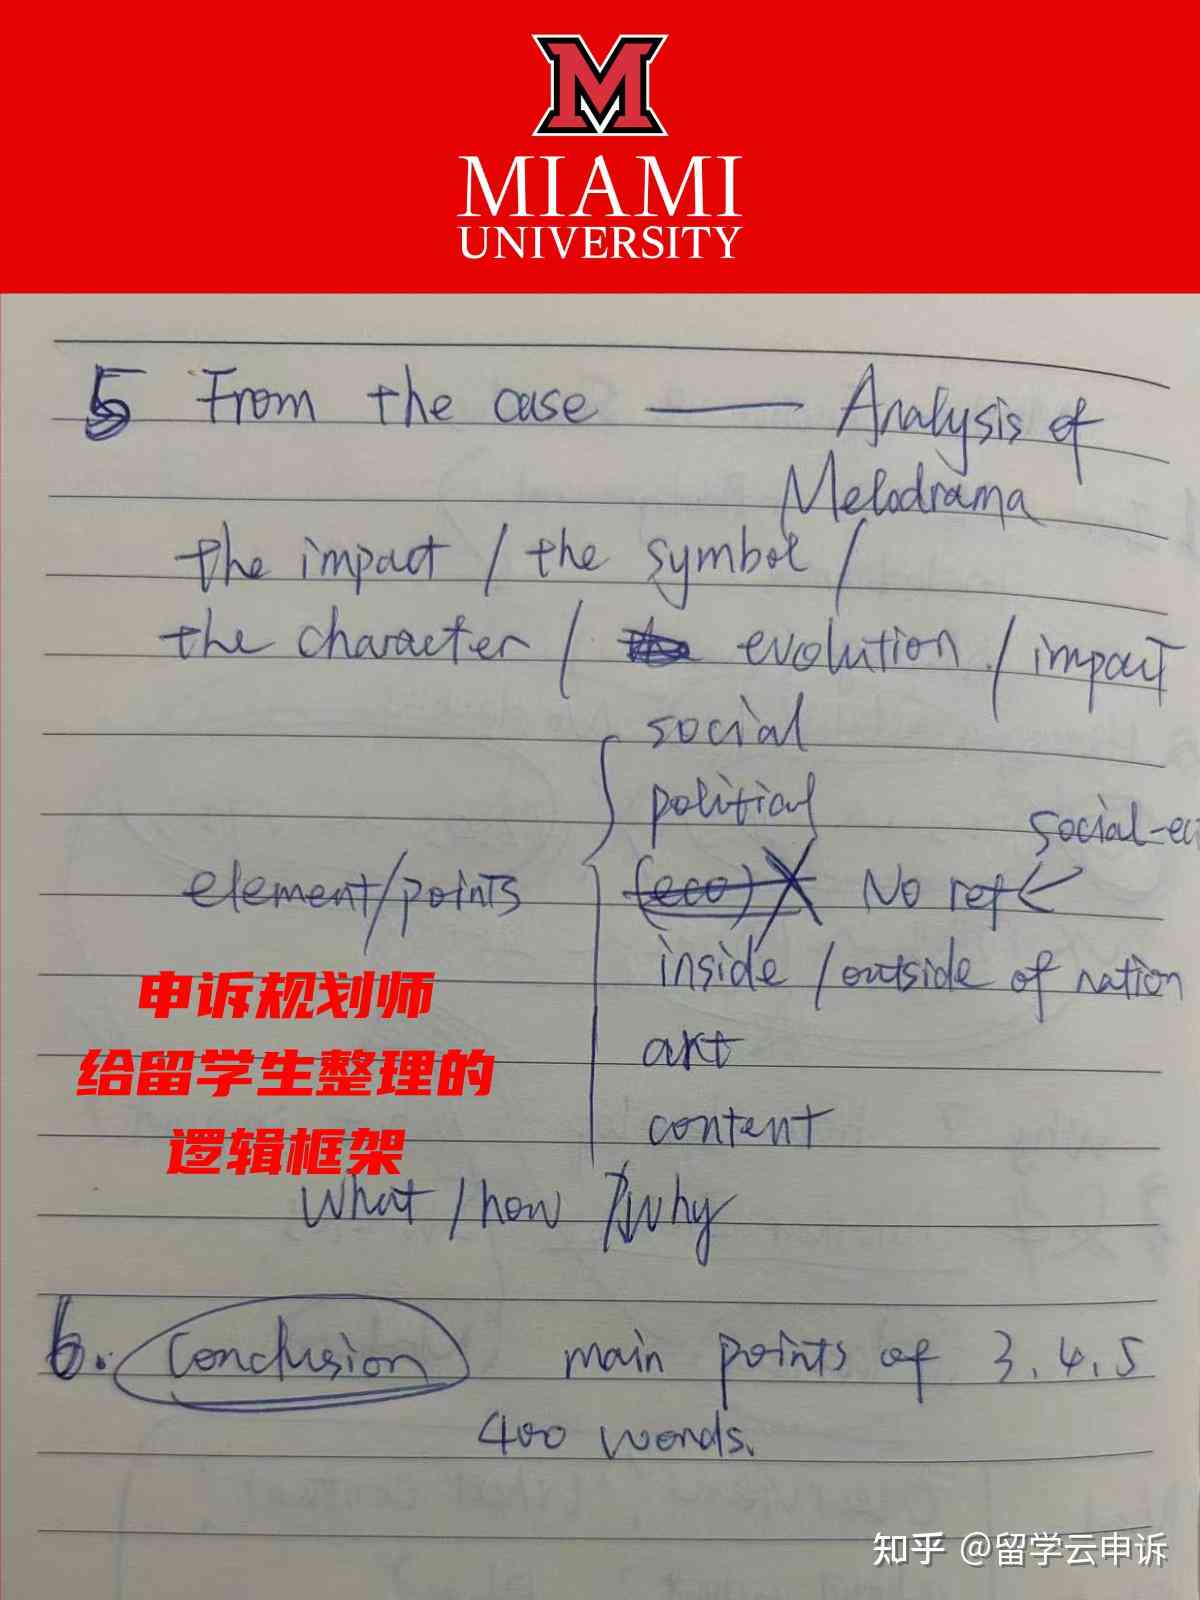 M
MIAMI
UNIVERSITY
5 From the case — Analysis of
Melodrama
the impact / the symbol /
the character / the evolution / impact
social
political
social-ec
element/points (eco) No ref <
inside / outside of nation
申诉规划师
art
给留学生整理的
content
逻辑框架
What / how / why
6. Conclusion main points of 3.4.5
400 words.
知乎 @留学云申诉